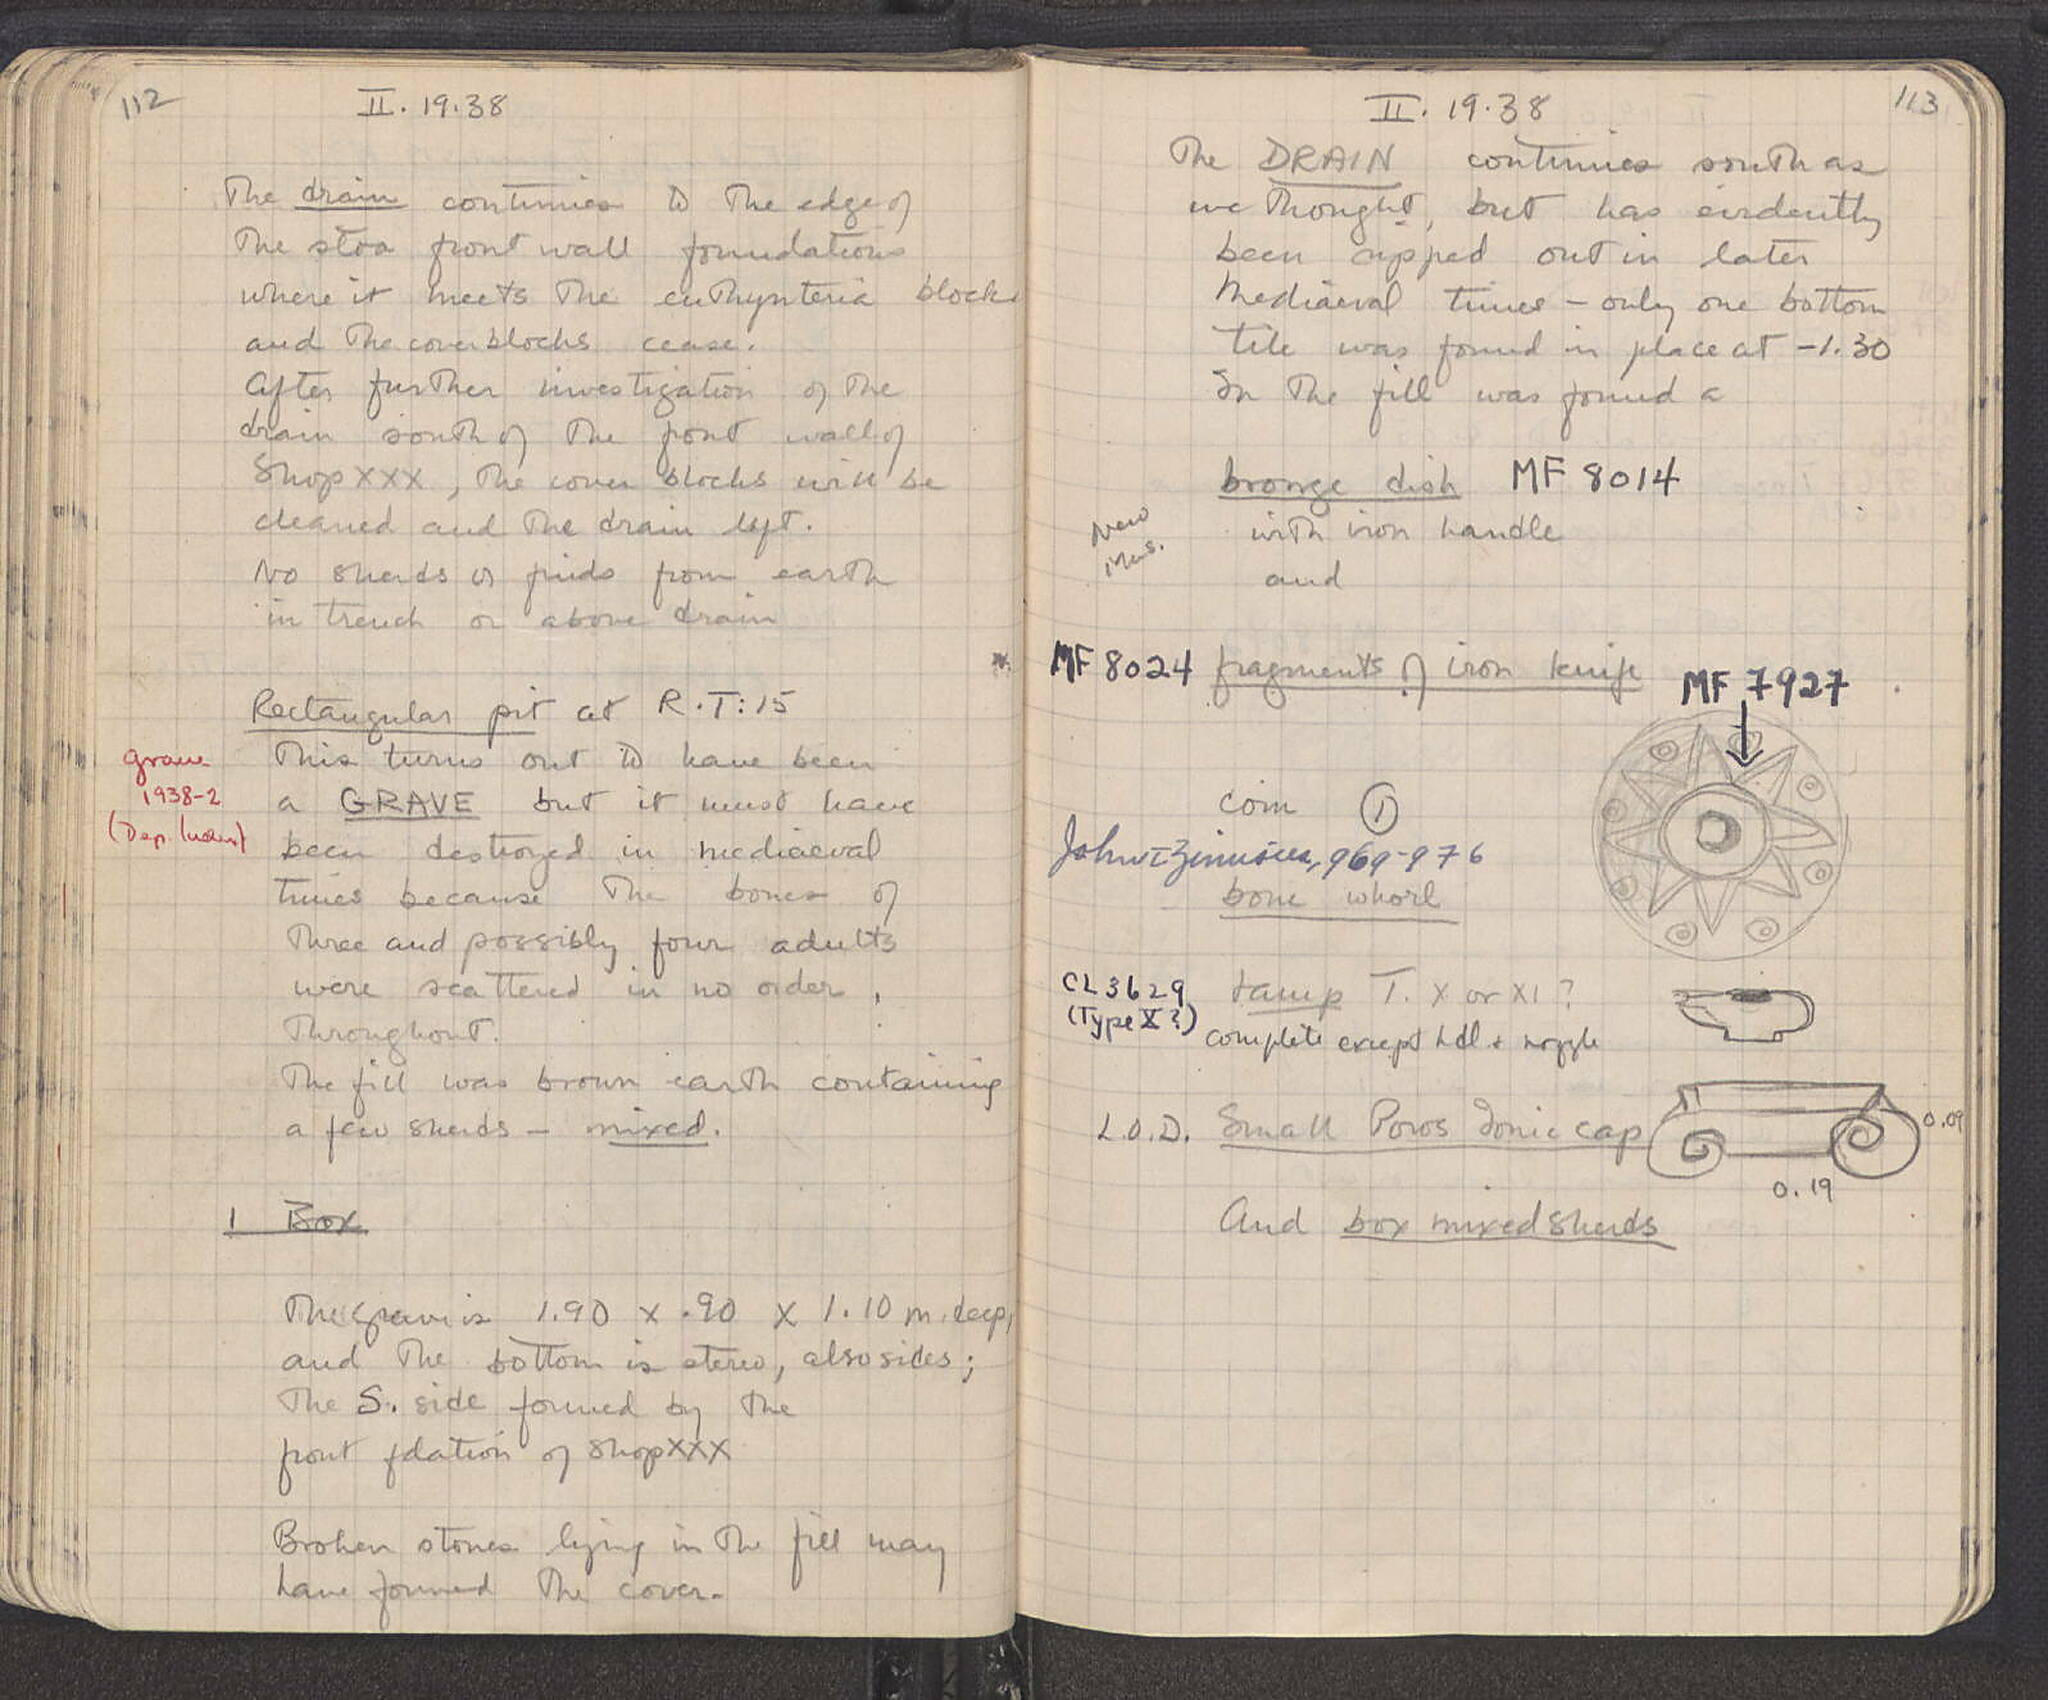 112
II. 19.38
The drain continues to the edge of
the stoa front wall foundations
where it meets the euthynteria blocks
and the coverblocks cease.
After further investigation of the
drain south of the front wall of
Shop XXX, the cover blocks will be
cleaned and the drain left.
No sherds or finds from earth
in trench or above drain
Rectangular pit at R.T:15
grave
1938-2
(Dep. Index)
This turns out to have been
a GRAVE but it must have
been destroyed in mediaeval
times because the bones of
three and possibly four adults
were scattered in no order,
throughout.
The fill was brown earth containing
a few sherds – mixed.
1 Box
The grave is 1.90 x .90 x 1.10 m. deep,
and the bottom is stereo, also sides;
the S. side formed by the
front fdation of Shop XXX
Broken stones lying in the fill may
have formed the cover.
113
II. 19.38
The DRAIN continues south as
we thought, but has evidently
been ripped out in later
Mediaeval times – only one bottom
tile was found in place at -1.30
In the fill was found a
bronze dish MF 8014
New
Mus.
with iron handle
and
MF 8024 fragments of iron knife
MF 7927
coin 1
John I Zimisces, 969-976
bone whorl
CL 3629
(Type X?)
Lamp T. X or XI?
complete except hdl + nozzle
L.O.D. Small Poros Ionic cap
0.09
0.19
And box mixed sherds